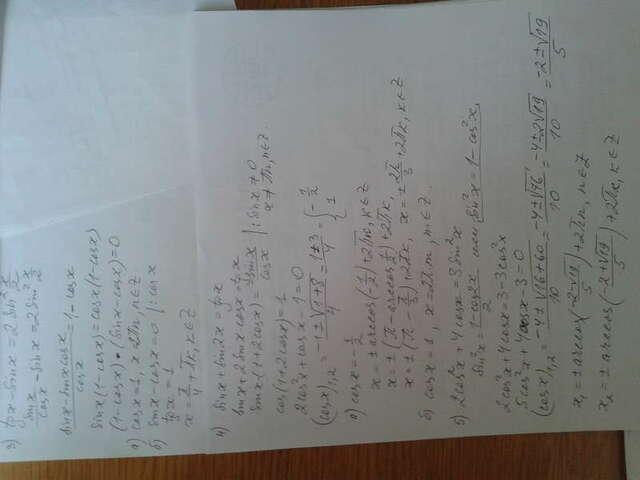 3) tgx - sinx = 2sin² x/2
sinx/cosx - sinx = 2sin² x/2
(sinx - sinx cosx)/cosx = 1 - cosx
sinx(1-cosx) = cosx(1-cosx)
(1-cosx)·(sinx-cosx)=0
а) cosx=1, x=2πn, n∈Z
б) sinx-cosx=0 |:cosx
tgx=1
x=π/4+πk, k∈Z
4) sinx+sin2x=tgx
sinx+2sinx cosx=tgx
sinx(1+2cosx)=sinx/cosx |:sinx≠0
x≠πn, n∈Z.
cosx(1+2cosx)=1
2cos²x+cosx-1=0
(cosx)₁,₂ = (-1±√(1+8))/4 = (1±3)/4 = {-1/2
1
а) cosx=-1/2
x=±arccos(-1/2)+2πk, k∈Z
x=±(π-arccos 1/2)+2πk,
x=±(π-π/3)+2πk, x=±2π/3+2πk, k∈Z
б) cosx=1, x=2πn, n∈Z.
5) 2cos²x+4cosx=3sin²x
sin²x=(1-cos2x)/2 или sin²x=1-cos²x,
2cos²x+4cosx=3-3cos²x
5cos²x+4cosx-3=0
(cosx)₁,₂ = (-4±√(16+60))/10 = (-4±√76)/10 = (-4±2√19)/10 = (-2±√19)/5
x₁=±arccos((-2-√19)/5)+2πn, n∈Z
x₂=±arccos((-2+√19)/5)+2πk, k∈Z